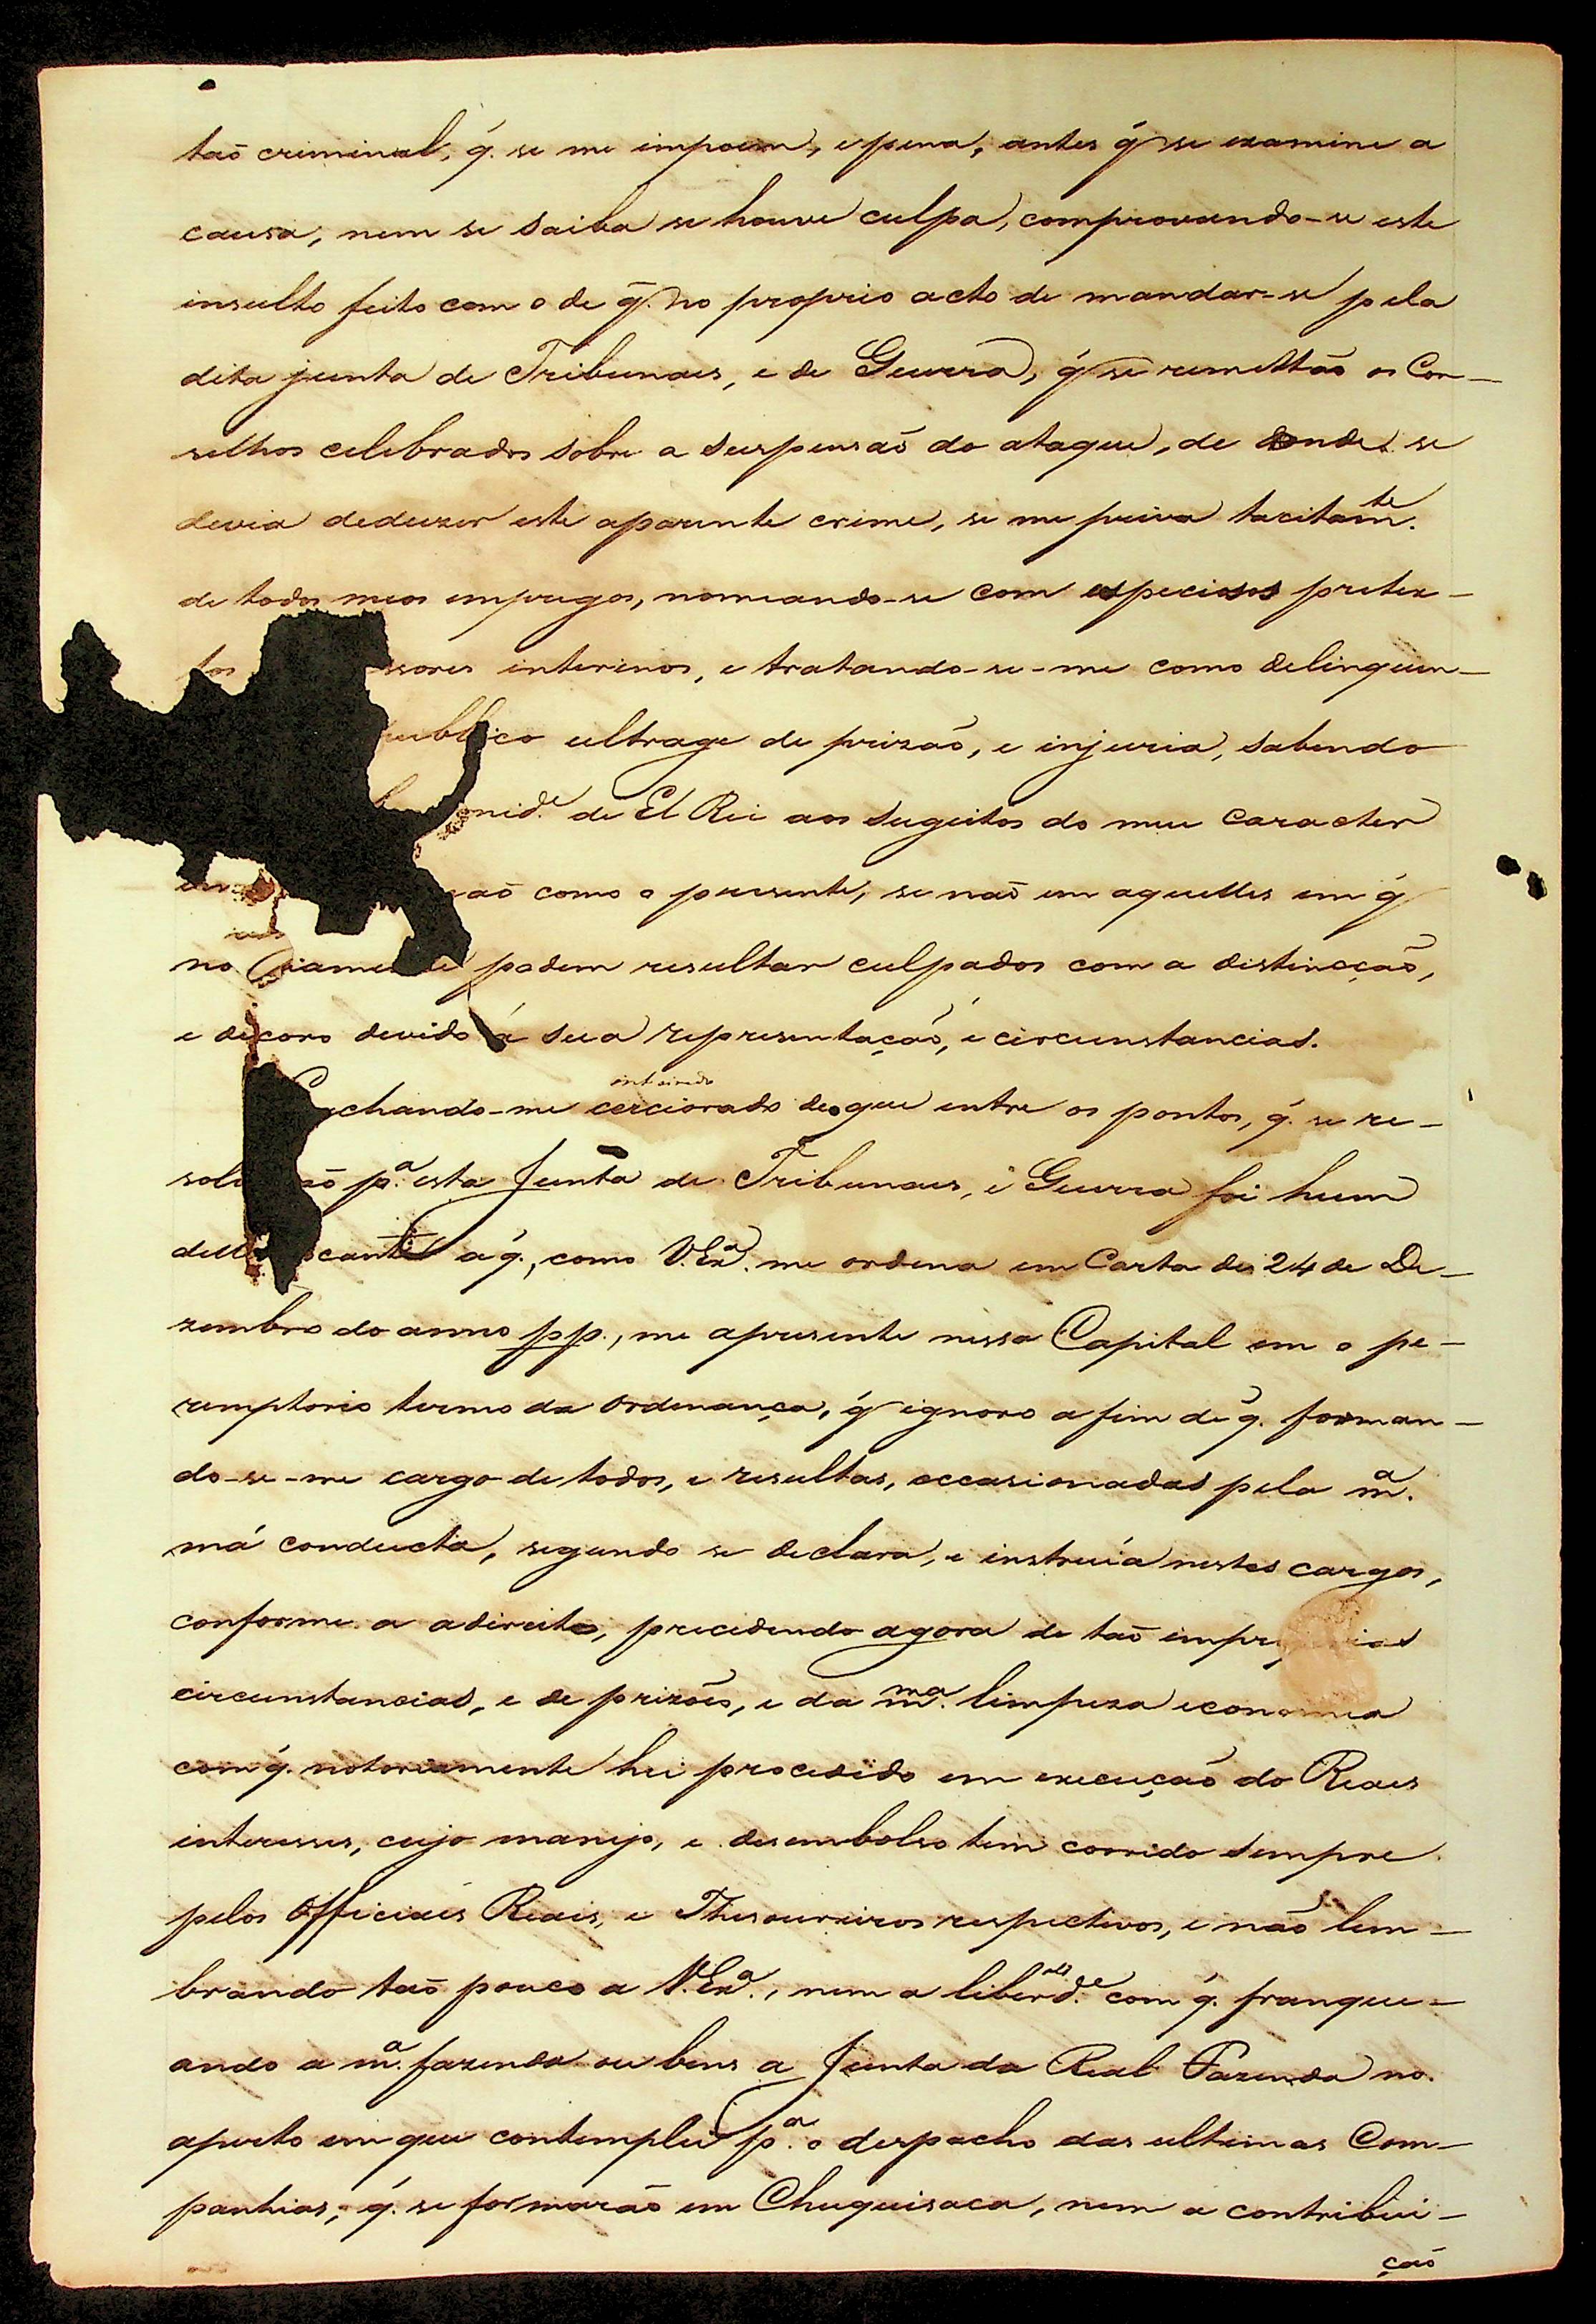 taõ criminal, q́. se me impoem, e pena, antes q́ se examine a
causa, nem se saiba se houve culpa, comprovando-se este
insulto feito com o de q̃. no proprio acto de mandar-se pela
dita junta de Tribunaes, e de Guerra, q́ se remettão os Con-
selhos celebrados sobre a suspensaõ do ataque, de donde se
devia deduzir este aparente crime, se me priva tacitamte.
de todos meos empregos, nomeando-se com especiosos pretex-
tos ssores interinos, e tratando-se-me como delinquen-
publico ultrage de prizaõ, e injuria, sabendo
nid.e de El Rei aos sugeitos do meu caracter
çaõ como o presente, se naõ em aquelles em q́
no riamente podem resultar culpados com a distincçaõ,
e decoro devido á sua representaçaõ, e circumstancias.
achando-me cerciorado de que entre os pontos, q́. se re-
inteirado
sol aõ p.a esta Junta de Tribunaes, e Guerra foi hum
dell scante a q́., como V.Ex.a me ordena em Carta de 24 de De-
zembro do anno pp., me apresente nessa Capital em o pe-
remptorio termo da Ordenança, q́ ignoro a fim de q́. forman-
do-se-me cargo de todos, e resultas, occasionadas pela m.a
má conducta, segundo se declara, e instruía nestes cargos,
conforme a a direito, precedendo agora de taõ
circumstancias, e de prizões, e da m.ma limpeza economia
com q́. notoriamente hei procedido em execuçaõ do Reaes
interesses, cujo manejo, e desembolso tem corrido sempre
pelos Officiaes Reais, e Thesoureiros respectivos, e não lem-
brando taõ pouco a V.Ex.a, nem a liberd.e com q́. franque-
ando a m.a fazenda ou bens a Junta da Real Fazenda no
aperto em que contemplei p.a o despacho das ultimas Com-
panhias, q́. se formarão em Chuquisaca, nem a contribui-
çaõ